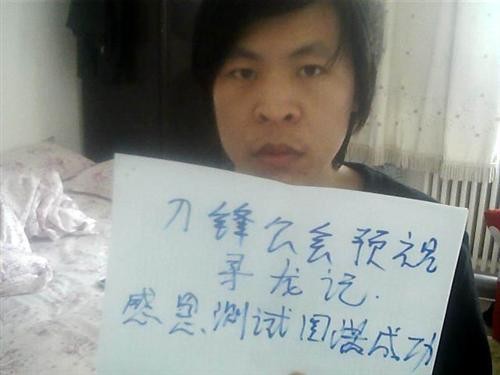 刀锋公会预祝
寻龙记.
感恩测试圆满成功